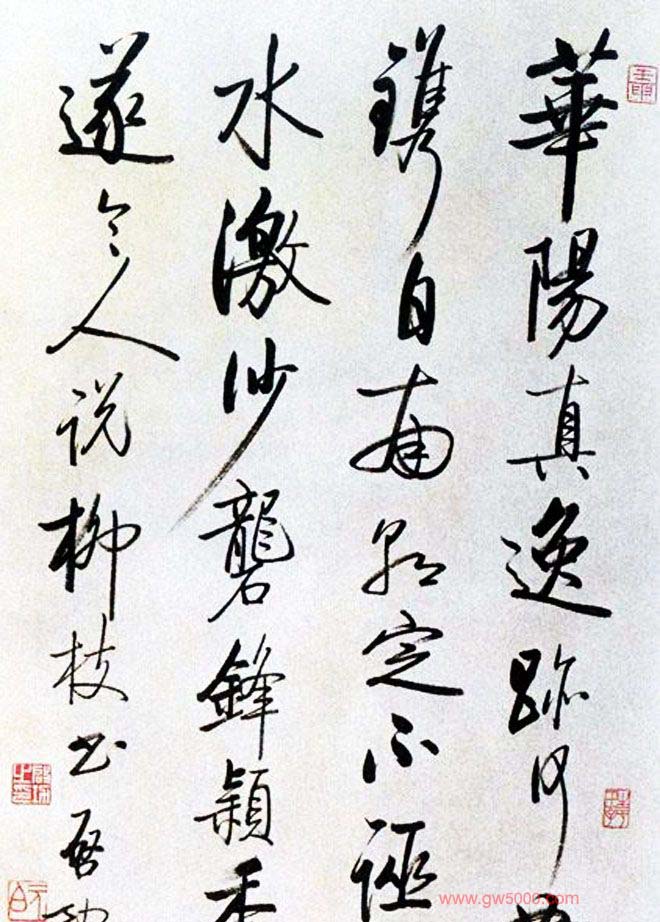 華陽真逸跡何
鐫自南朝定不誣
水激沙礱鋒穎禿
遂令人說柳枝書 啓功
www.gw5000.com